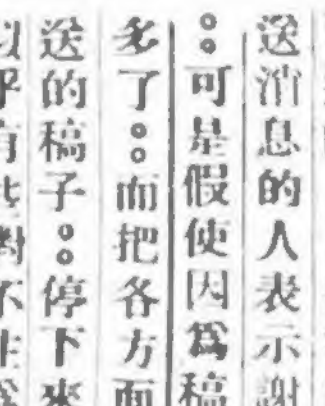 送消息的人表示謝
。。可是假使因爲稿
多了。。而把各方面
送的稿子。。停下來